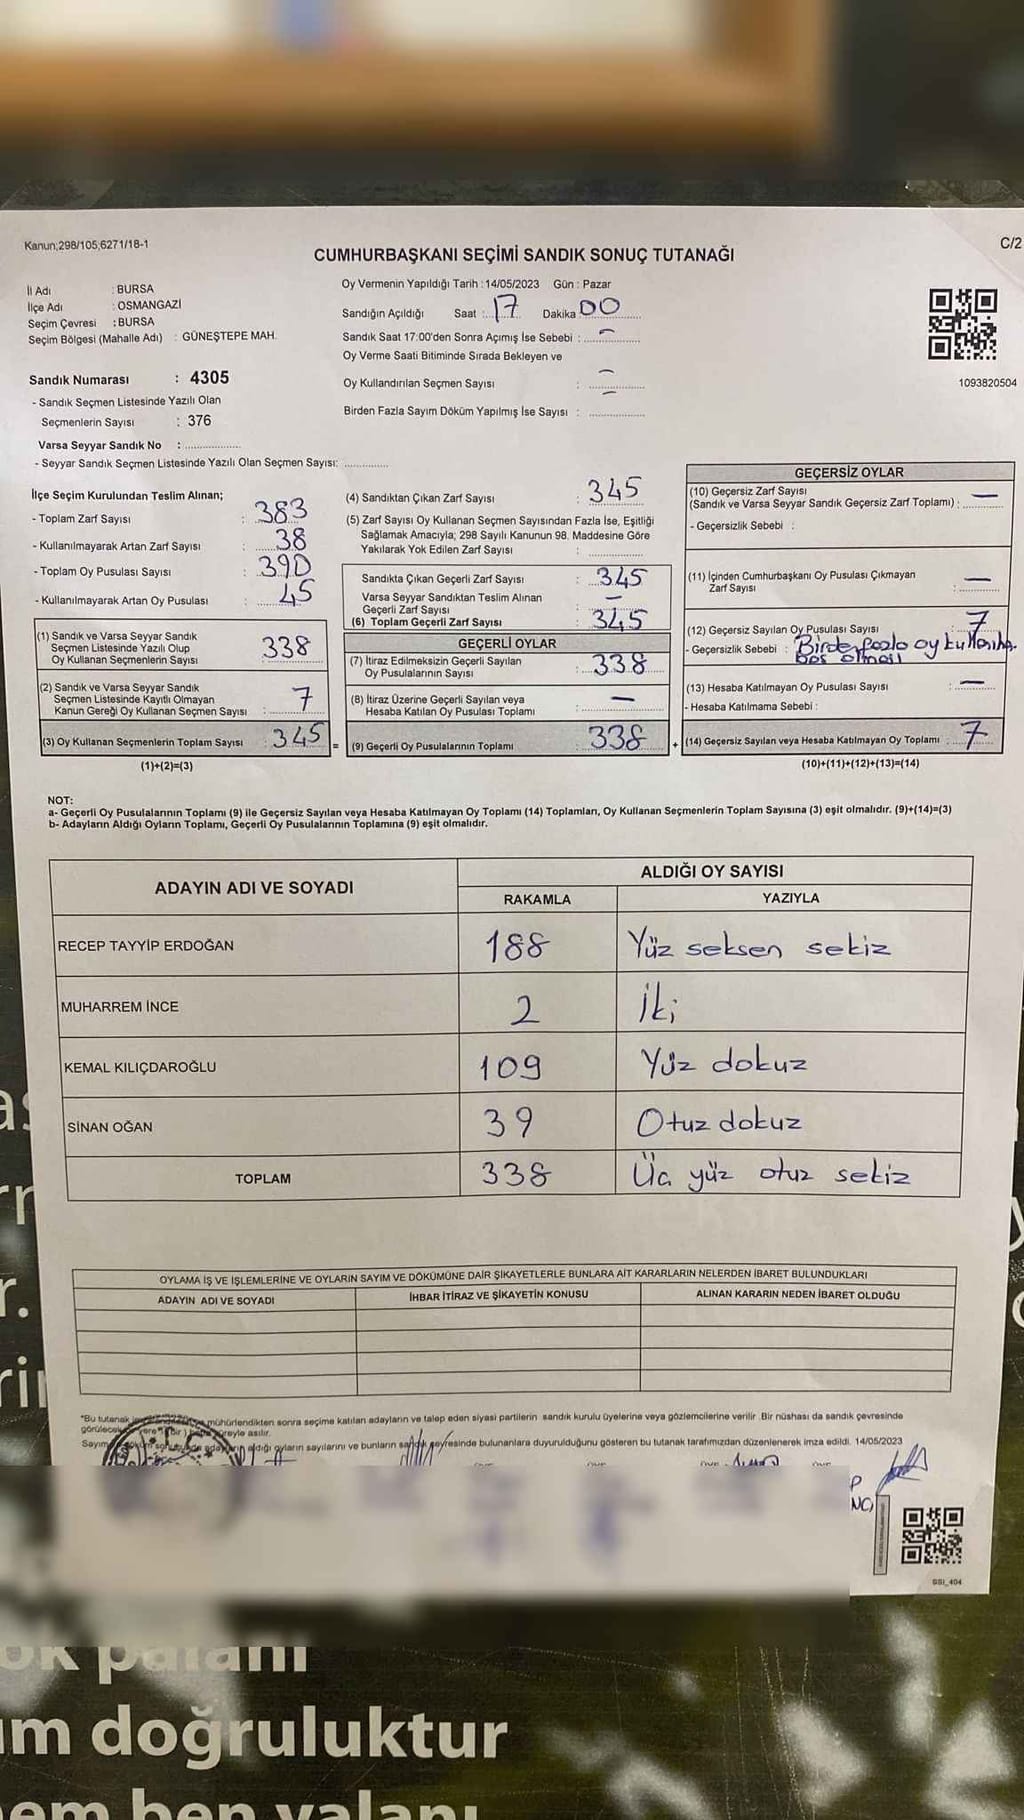 Kanun;298/105;6271/18-1
C/2
CUMHURBAŞKANI SEÇİMİ SANDIK SONUÇ TUTANAĞI
İl Adı : BURSA
İlçe Adı : OSMANGAZİ
Seçim Çevresi : BURSA
Seçim Bölgesi (Mahalle Adı) : GÜNEŞTEPE MAH.
Sandık Numarası : 4305
- Sandık Seçmen Listesinde Yazılı Olan
Seçmenlerin Sayısı : 376
Varsa Seyyar Sandık No :
- Seyyar Sandık Seçmen Listesinde Yazılı Olan Seçmen Sayısı:
Oy Vermenin Yapıldığı Tarih : 14/05/2023 Gün : Pazar
Sandığın Açıldığı Saat : 17 Dakika 00
Sandık Saat 17:00'den Sonra Açımış İse Sebebi : -
Oy Verme Saati Bitiminde Sırada Bekleyen ve
Oy Kullandırılan Seçmen Sayısı : -
Birden Fazla Sayım Döküm Yapılmış İse Sayısı : -
1093820504
İlçe Seçim Kurulundan Teslim Alınan;
- Toplam Zarf Sayısı : 383
- Kullanılmayarak Artan Zarf Sayısı : 38
- Toplam Oy Pusulası Sayısı : 390
- Kullanılmayarak Artan Oy Pusulası : 45
(1) Sandık ve Varsa Seyyar Sandık
Seçmen Listesinde Yazılı Olup
Oy Kullanan Seçmenlerin Sayısı : 338
(2) Sandık ve Varsa Seyyar Sandık
Seçmen Listesinde Kayıtlı Olmayan
Kanun Gereği Oy Kullanan Seçmen Sayısı : 7
(3) Oy Kullanan Seçmenlerin Toplam Sayısı : 345
(1)+(2)=(3)
=
(4) Sandıktan Çıkan Zarf Sayısı : 345
(5) Zarf Sayısı Oy Kullanan Seçmen Sayısından Fazla İse, Eşitliği
Sağlamak Amacıyla; 298 Sayılı Kanunun 98. Maddesine Göre
Yakılarak Yok Edilen Zarf Sayısı :
Sandıkta Çıkan Geçerli Zarf Sayısı : 345
Varsa Seyyar Sandıktan Teslim Alınan
Geçerli Zarf Sayısı : -
(6) Toplam Geçerli Zarf Sayısı : 345
GEÇERLİ OYLAR
(7) İtiraz Edilmeksizin Geçerli Sayılan
Oy Pusulalarının Sayısı : 338
(8) İtiraz Üzerine Geçerli Sayılan veya
Hesaba Katılan Oy Pusulası Toplamı : -
(9) Geçerli Oy Pusulalarının Toplamı : 338
+
GEÇERSİZ OYLAR
(10) Geçersiz Zarf Sayısı
(Sandık ve Varsa Seyyar Sandık Geçersiz Zarf Toplamı) : -
- Geçersizlik Sebebi :
(11) İçinden Cumhurbaşkanı Oy Pusulası Çıkmayan
Zarf Sayısı : -
(12) Geçersiz Sayılan Oy Pusulası Sayısı : 7
- Geçersizlik Sebebi : Birden fazla oy
boş olması
(13) Hesaba Katılmayan Oy Pusulası Sayısı : -
- Hesaba Katılmama Sebebi :
(14) Geçersiz Sayılan veya Hesaba Katılmayan Oy Toplamı : 7
(10)+(11)+(12)+(13)=(14)
NOT:
a- Geçerli Oy Pusulalarının Toplamı (9) ile Geçersiz Sayılan veya Hesaba Katılmayan Oy Toplamı (14) Toplamları, Oy Kullanan Seçmenlerin Toplam Sayısına (3) eşit olmalıdır. (9)+(14)=(3)
b- Adayların Aldığı Oyların Toplamı, Geçerli Oy Pusulalarının Toplamına (9) eşit olmalıdır.
ADAYIN ADI VE SOYADI
ALDIĞI OY SAYISI
RAKAMLA YAZIYLA
RECEP TAYYİP ERDOĞAN 188 Yüz seksen sekiz
MUHARREM İNCE 2 İki
KEMAL KILIÇDAROĞLU 109 Yüz dokuz
SİNAN OĞAN 39 Otuz dokuz
TOPLAM 338 Üç yüz otuz sekiz
OYLAMA İŞ VE İŞLEMLERİNE VE OYLARIN SAYIM VE DÖKÜMÜNE DAİR ŞİKAYETLERLE BUNLARA AİT KARARLARIN NELERDEN İBARET BULUNDUKLARI
ADAYIN ADI VE SOYADI İHBAR İTİRAZ VE ŞİKAYETİN KONUSU ALINAN KARARIN NEDEN İBARET OLDUĞU
*Bu tutanak mühürlendikten sonra seçime katılan adayların ve talep eden siyasi partilerin sandık kurulu üyelerine veya gözlemcilerine verilir. Bir nüshası da sandık çevresinde
süreyle asılır.
Sayım aldığı oyların sayılarını ve bunların sandık çevresinde bulunanlara duyurulduğunu gösteren bu tutanak tarafımızdan düzenlenerek imza edildi. 14/05/2023
GSI_404
m doğruluktur